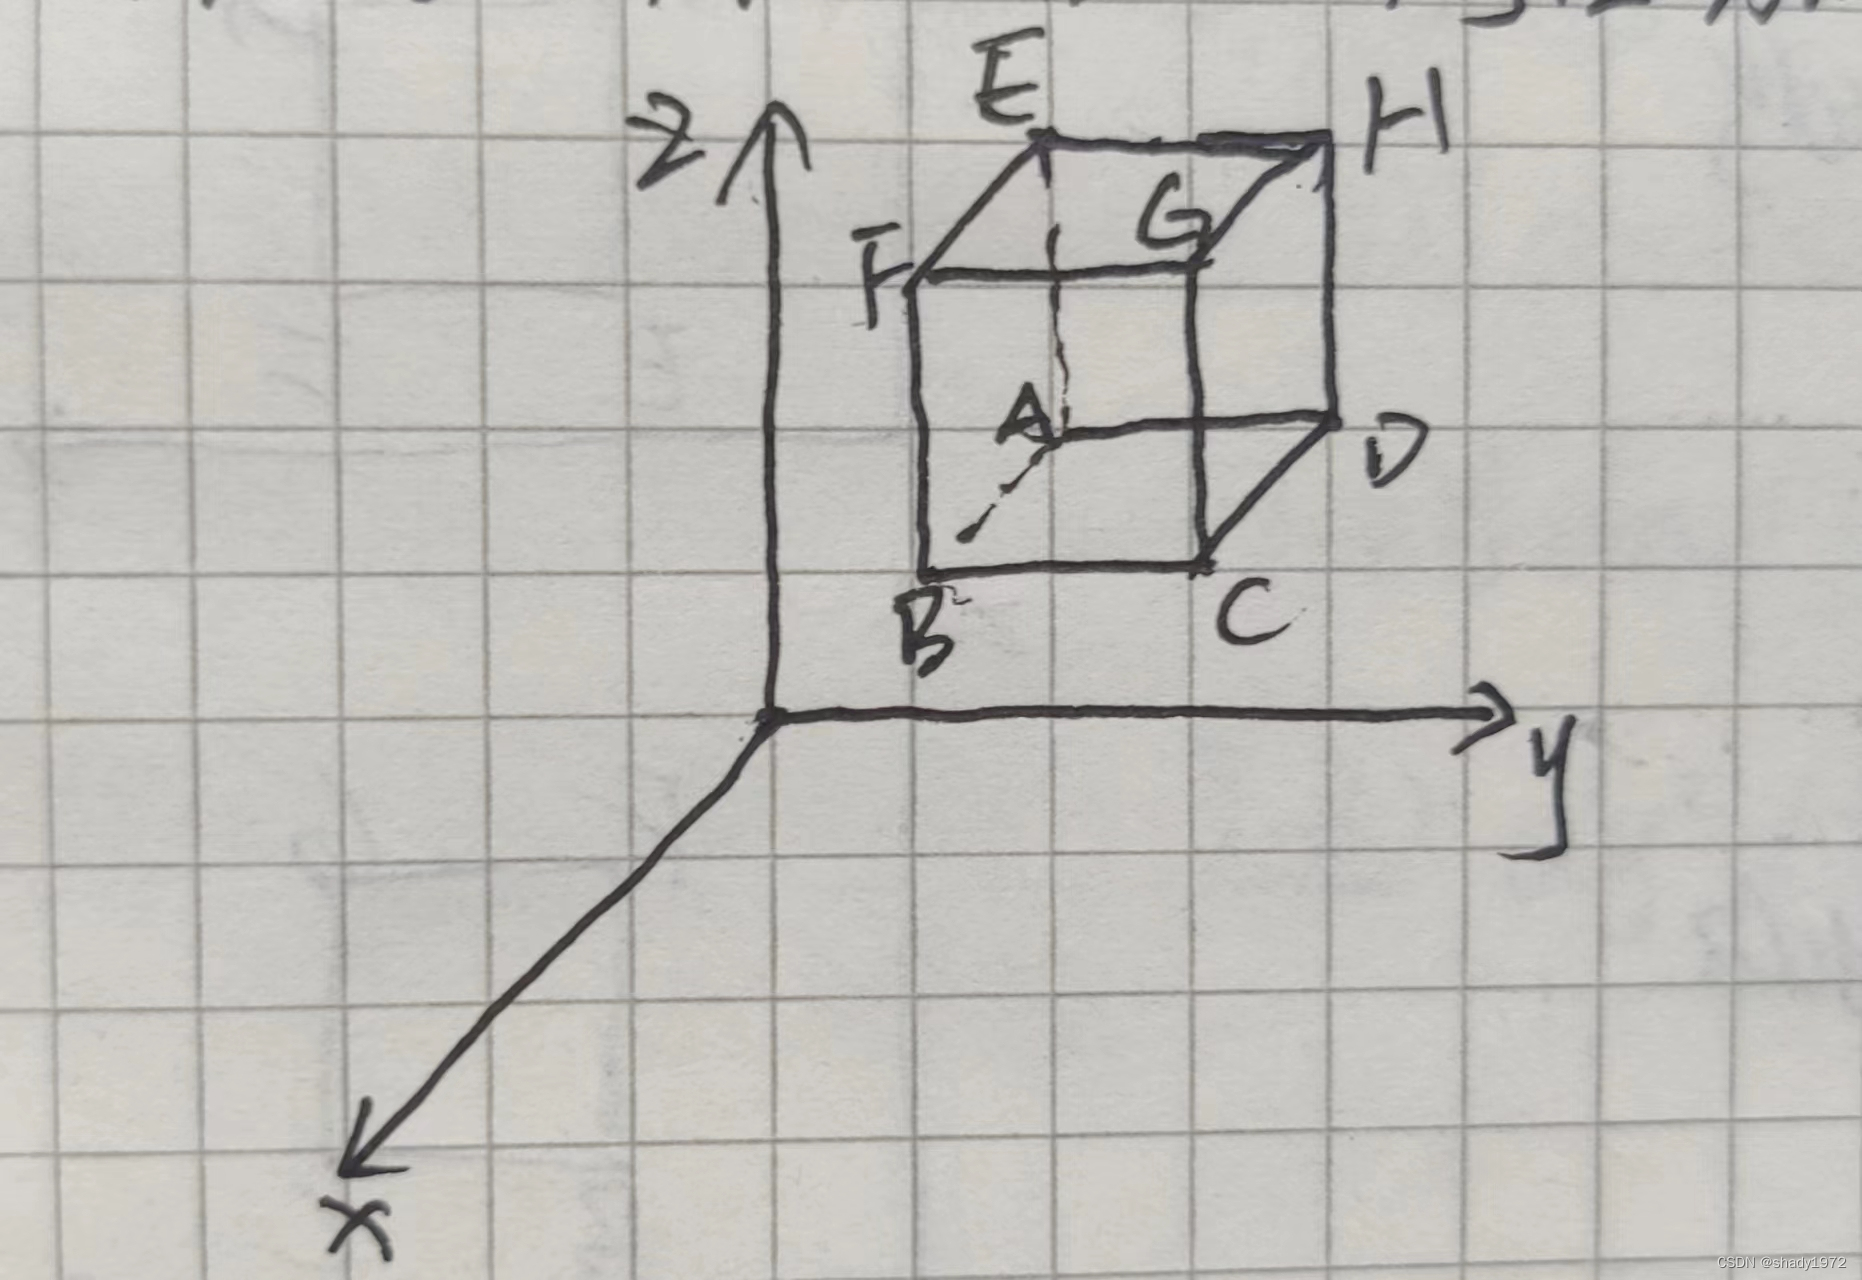 E
Z
H
G
F
A
D
B
C
y
x
CSDN @shady1972